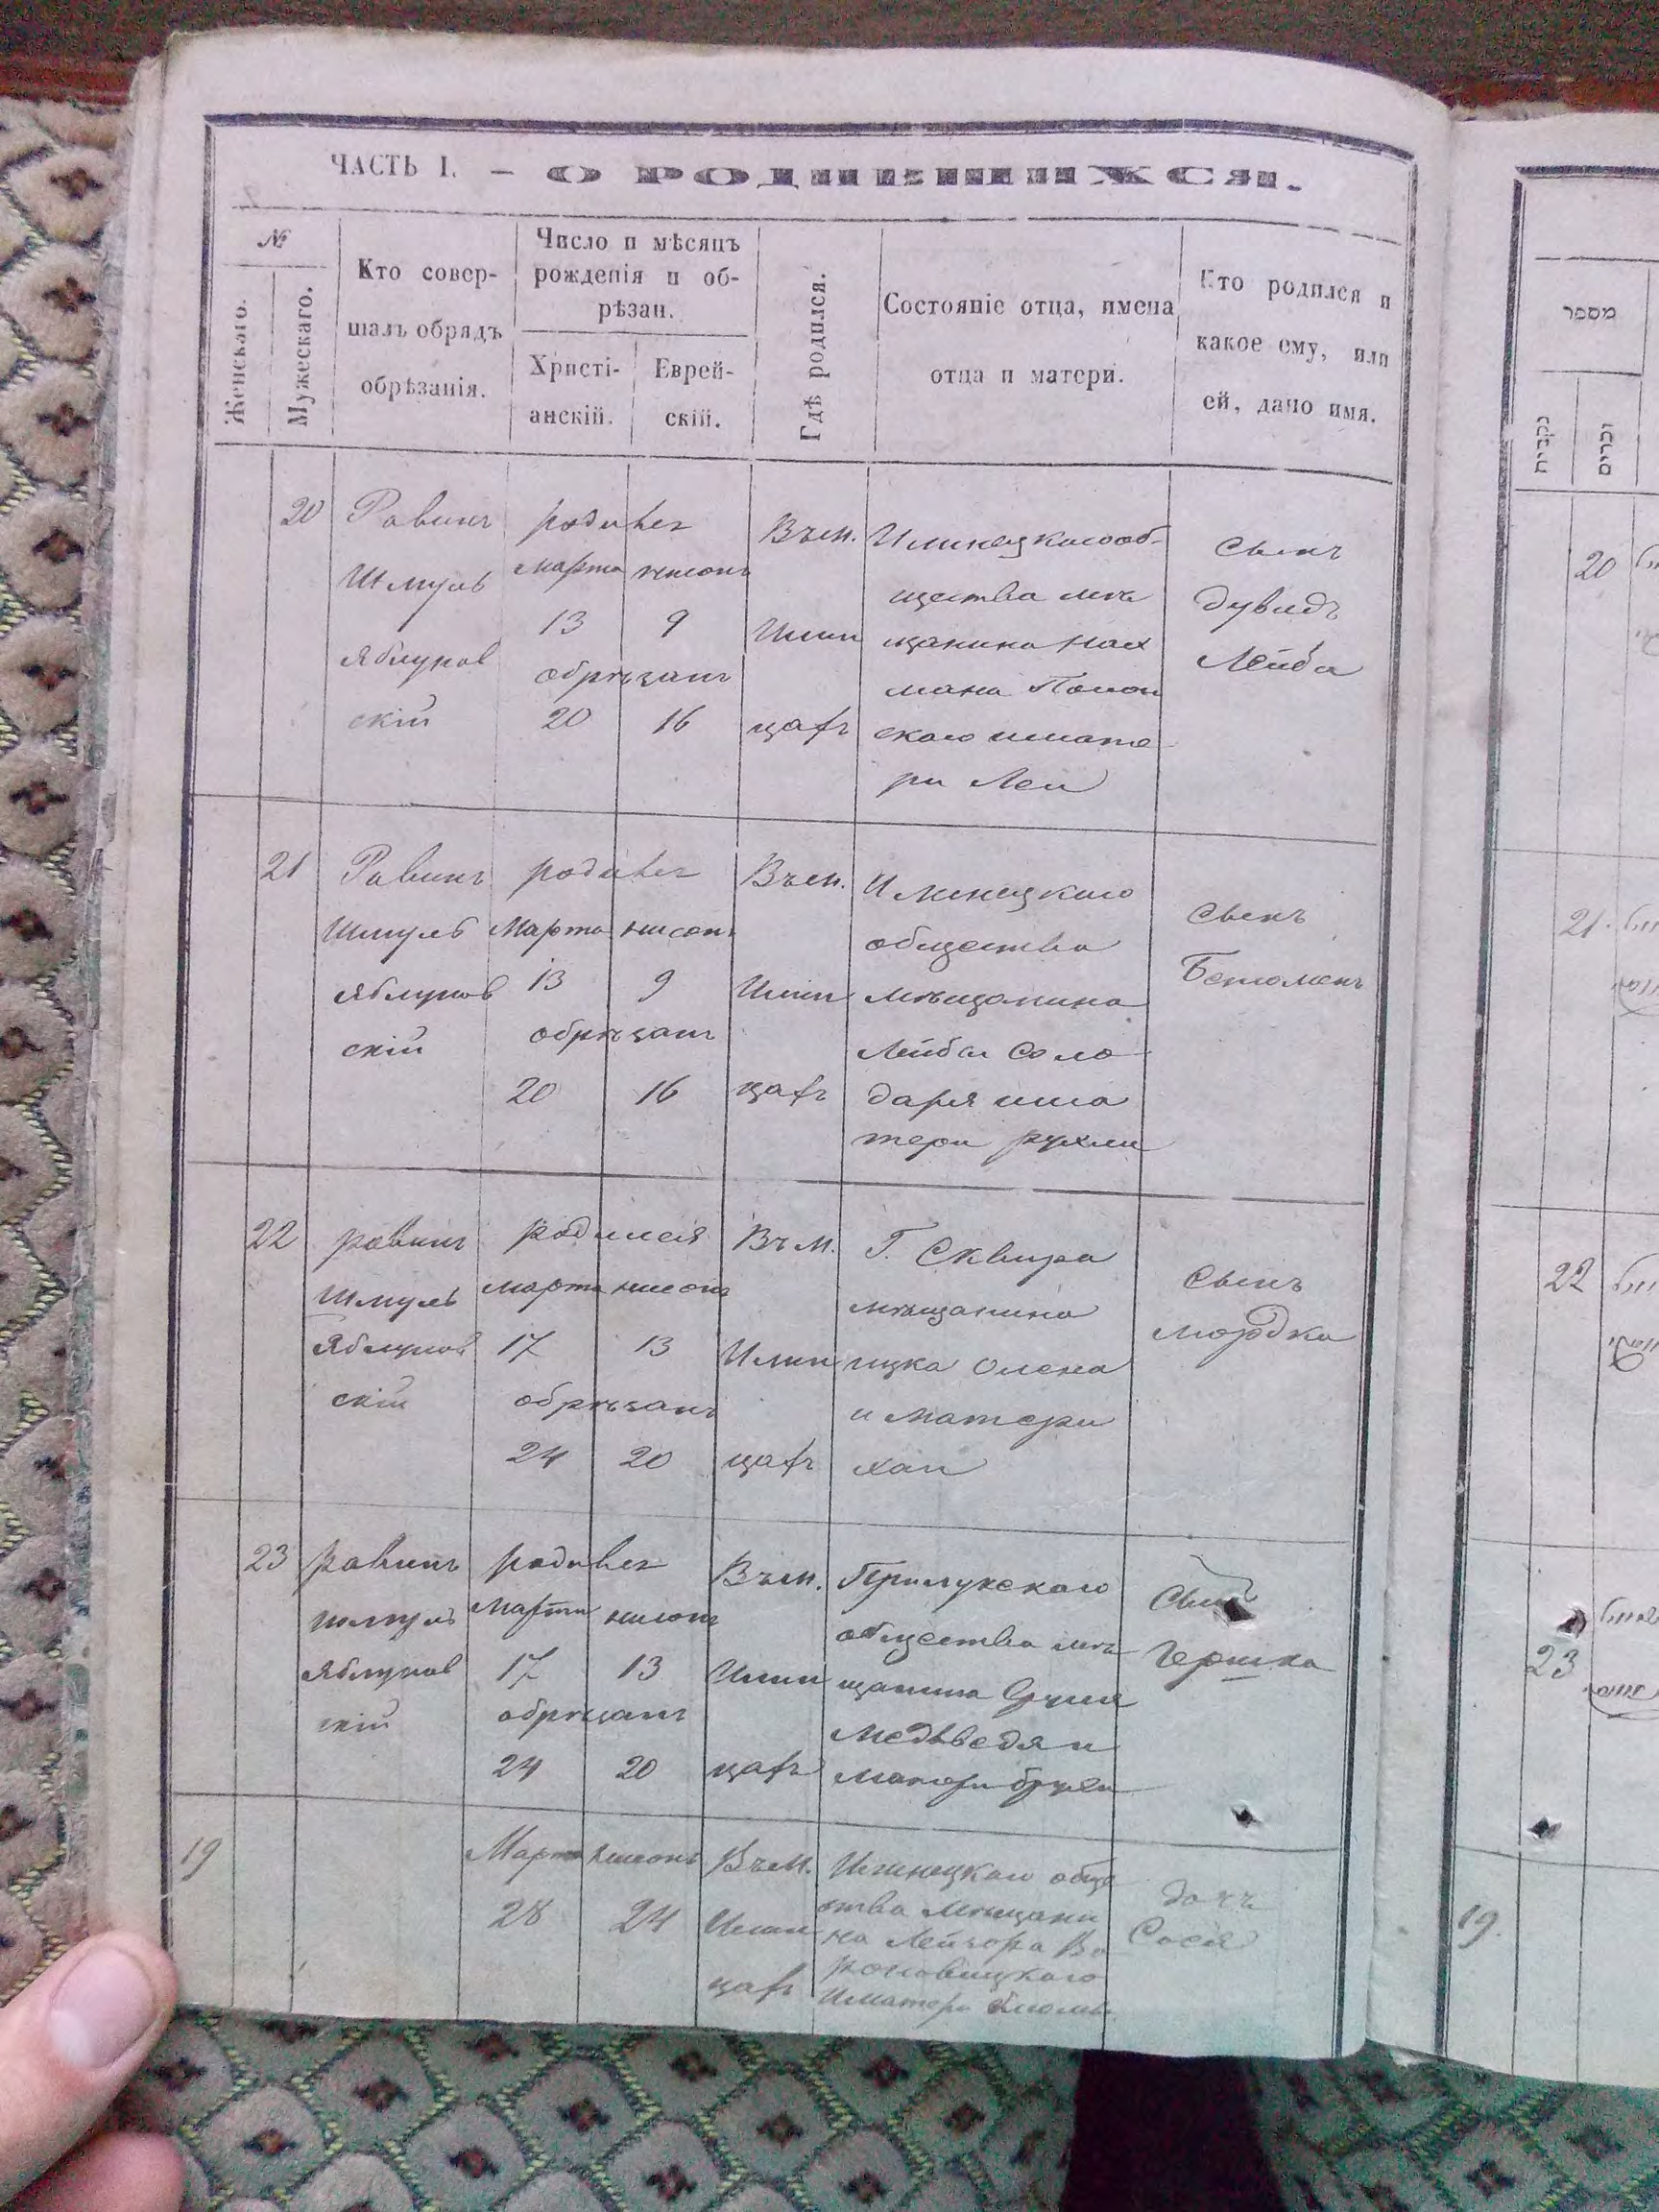 ЧАСТЬ I. — О РОДИВШИХСЯ.
№
Женскаго.
Мужескаго.
Кто совер-
шалъ обрядъ
обрѣзанія.
Число и мѣсяцъ
рожденія и об-
рѣзан.
Христі-
анскій.
Еврей-
скій.
Гдѣ родился.
Состояніе отца, имена
отца и матери.
Кто родился и
какое ему, или
ей, дано имя.
20
Равинъ
Шмуль
Яблунов
скій
родився
марта нисонъ
13 9
обрѣзанъ
20 16
Въ м.
Илин
цахъ
Илинецкого об-
щества мѣ
щанина Нах
мана
ского и мате
ри Леи
Сынъ
Дувидъ
Лейба
21
Равинъ
Шмуль
Яблунов
скій
родився
Марта нисонъ
13 9
обрѣзанъ
20 16
Въ м.
Илин
цахъ
Илинецкого
общества
мѣщанина
Лейбы Соло
даря и ма
тери Рухли
Сынъ
22
равинъ
Шмуль
Яблунов
скій
родился
марта нисонъ
17 13
обрѣзанъ
24 20
Въ м.
Илин
цахъ
Г. Сквира
мѣщанина
ицка
и матери
хаи
Сынъ
мордко
23
равинъ
шмуль
Яблунов
скій
родився
марта нисонъ
17 13
обрѣзанъ
24 20
Въ м.
Илин
цахъ
Прилукского
общества мѣ
щанина
Медведя и
матери
Сынъ
Гершко
19
Марта нисонъ
28 24
Въ м.
Илин
цахъ
Илинецкого обще
ства Мѣщани
на Лейзора Во
роновицкого
И матери
дочь
Сося
מספר
נקבות
זכרים
20
21
22
23
19.